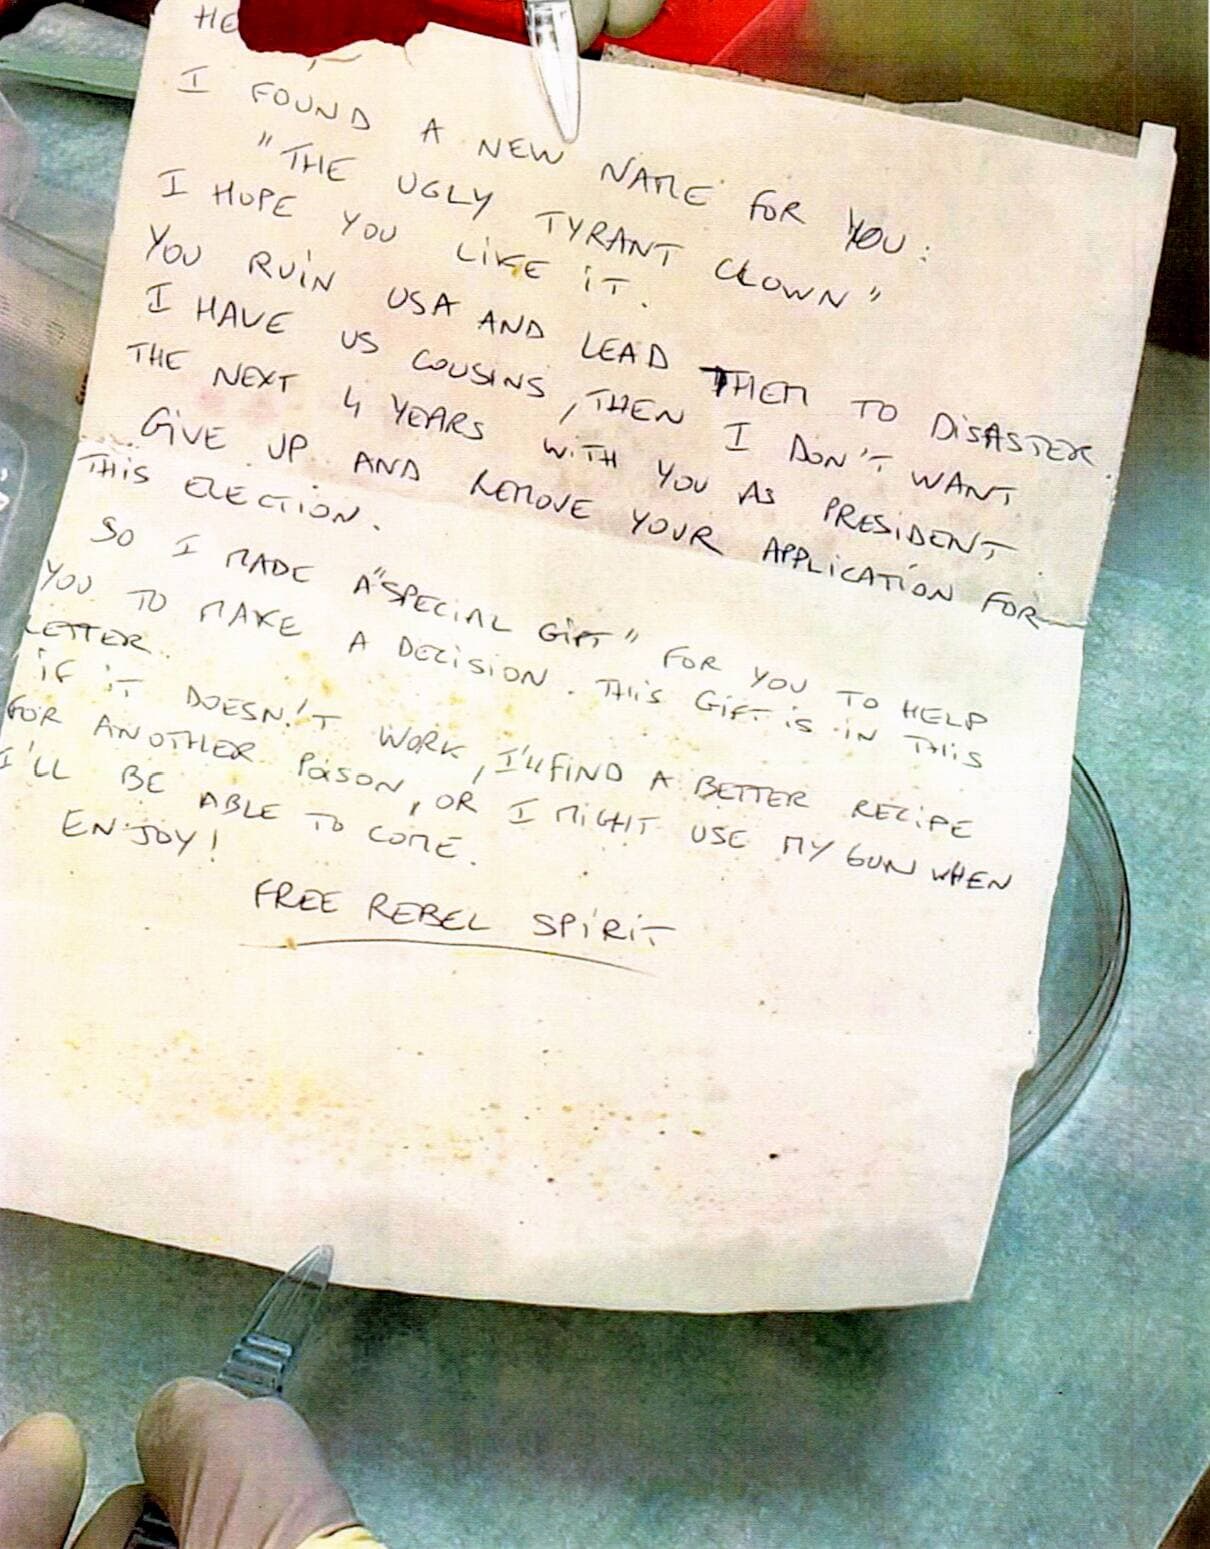 HE
I FOUND A NEW NAME FOR YOU:
"THE UGLY TYRANT CLOWN"
I HOPE YOU LIKE IT.
YOU RUIN USA AND LEAD THEM TO DISASTER.
I HAVE US COUSINS, THEN I DON'T WANT
THE NEXT 4 YEARS WITH YOU AS PRESIDENT.
GIVE UP AND REMOVE YOUR APPLICATION FOR
THIS ELECTION.
SO I MADE A "SPECIAL GIFT" FOR YOU TO HELP
YOU TO MAKE A DECISION. THIS GIFT IS IN THIS
LETTER.
IF IT DOESN'T WORK, I'll FIND A BETTER RECIPE
FOR ANOTHER POISON, OR I MIGHT USE MY GUN WHEN
I'LL BE ABLE TO COME.
ENJOY!
FREE REBEL SPIRIT